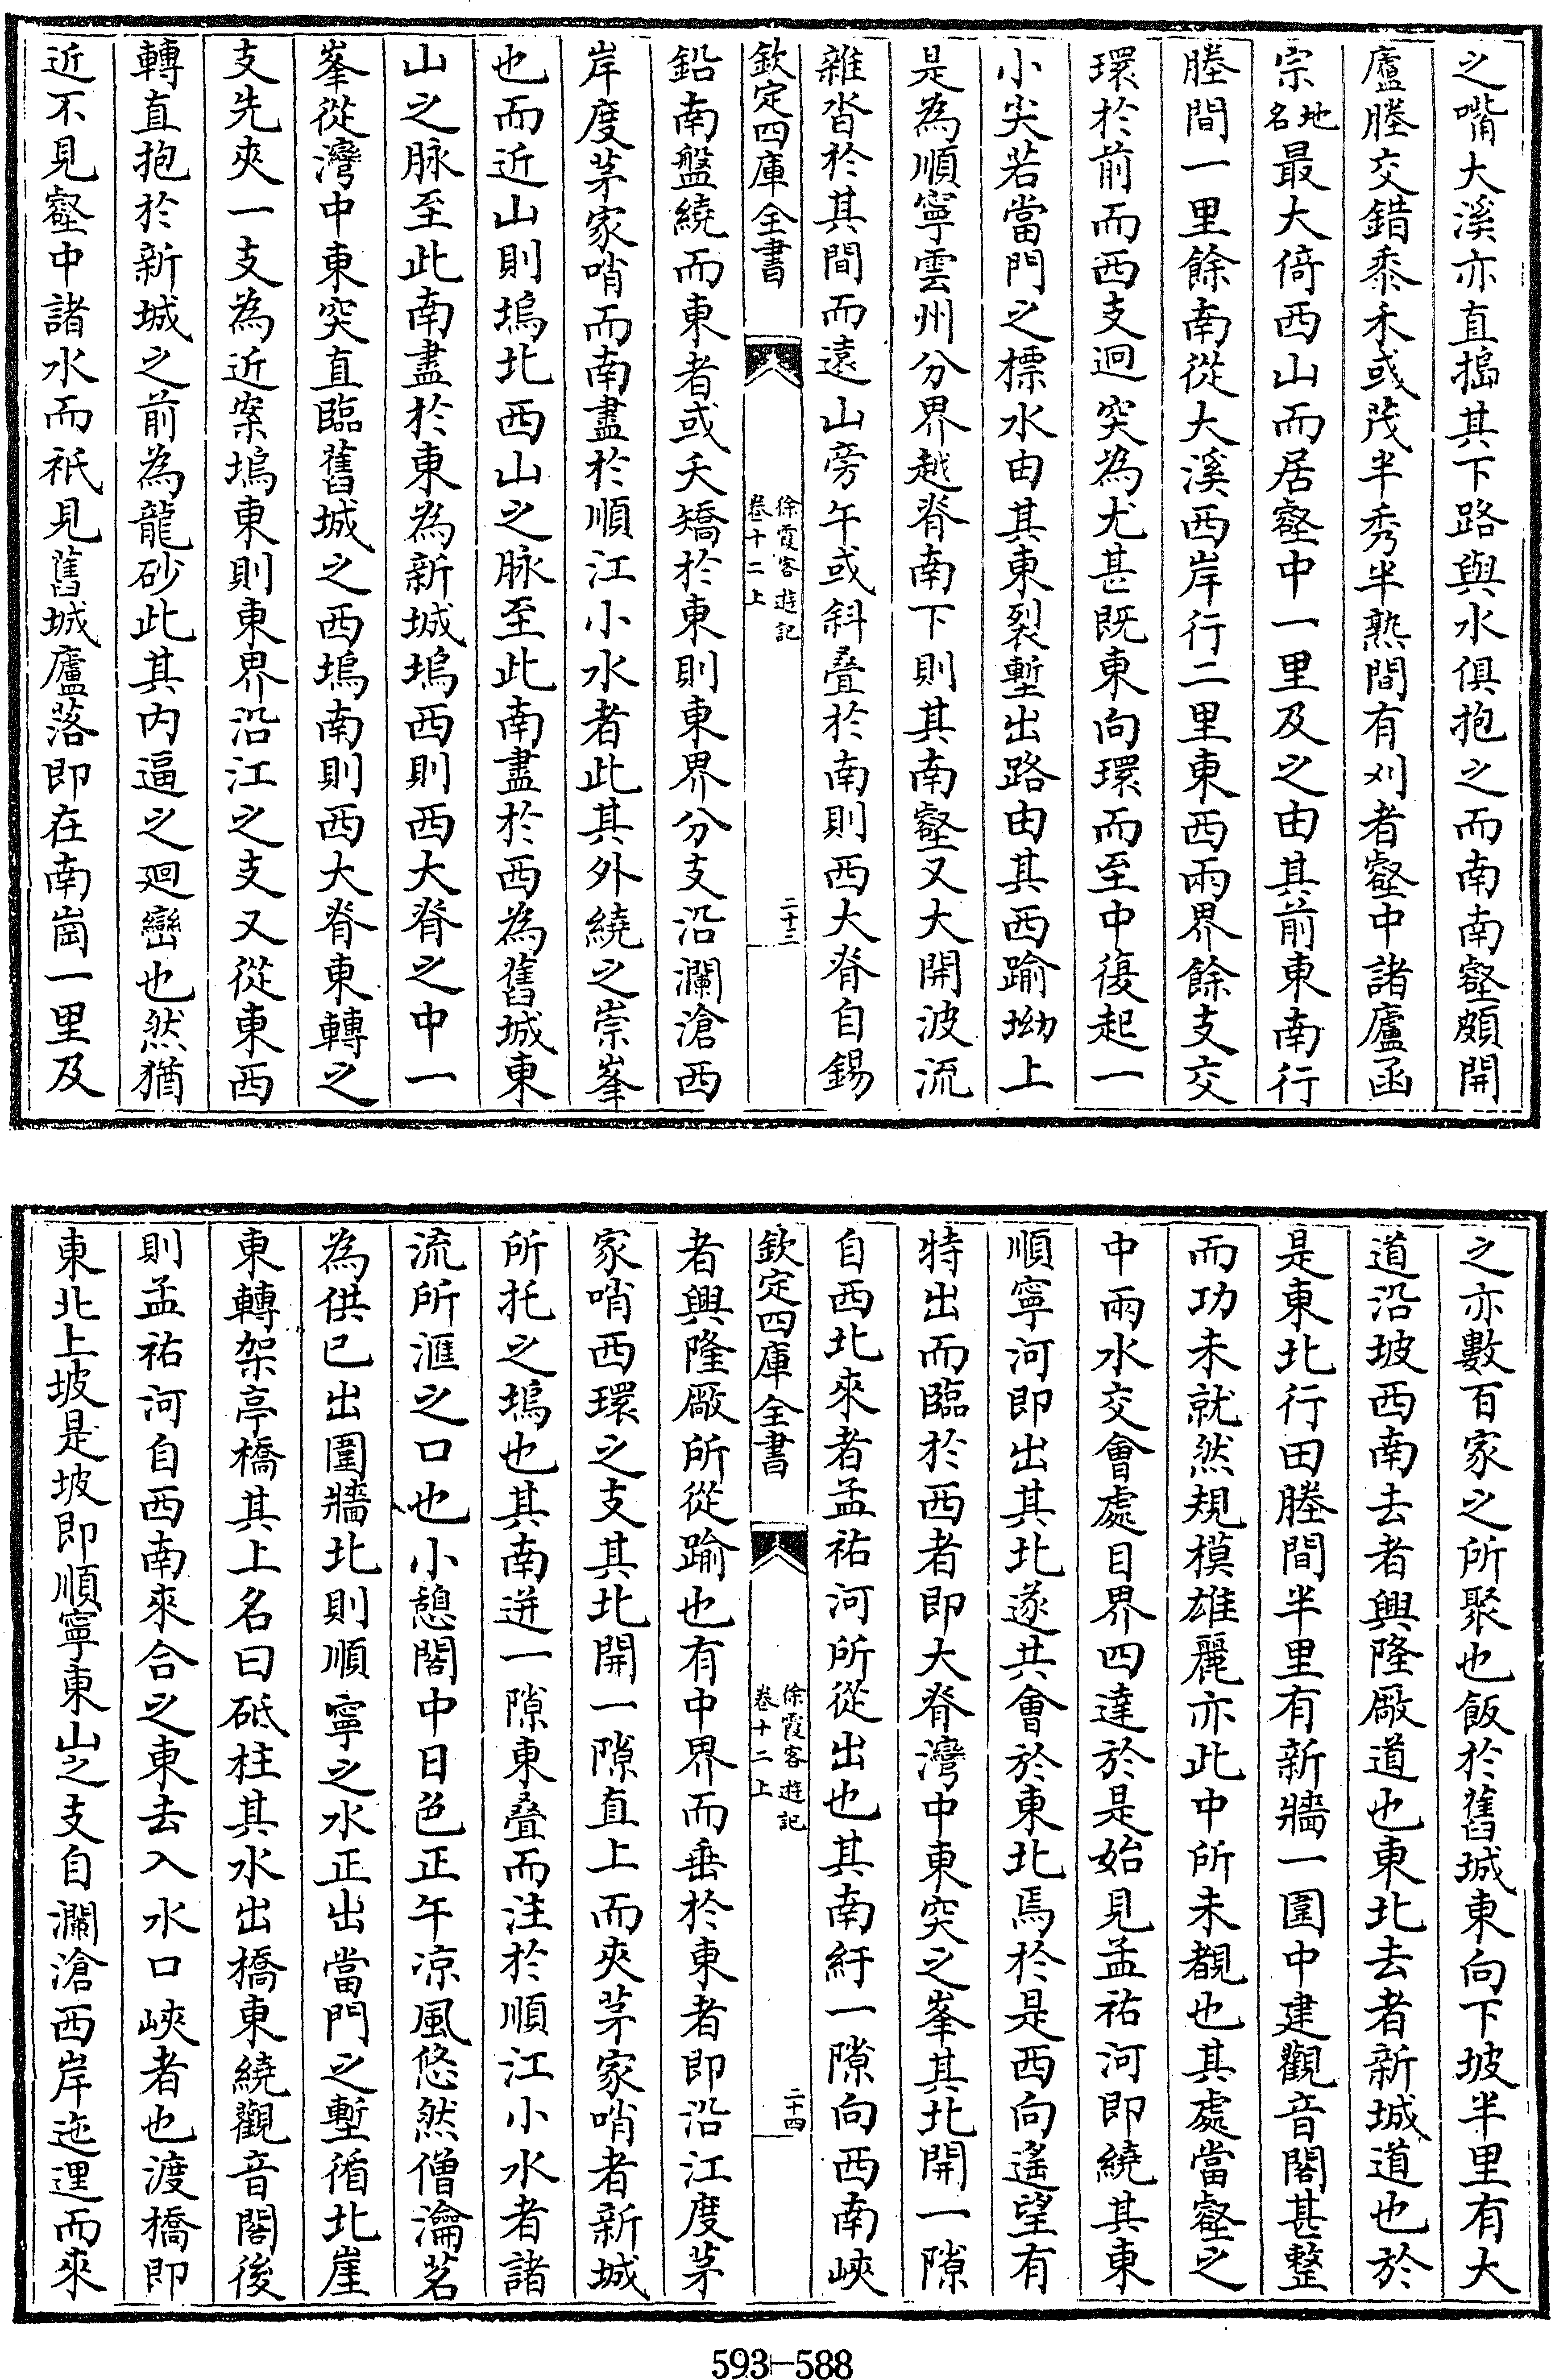 之嘴大溪亦直搗其下路與水俱抱之而南南壑頗開
廬塍交錯黍禾或茂半秀半熟間有刈者壑中諸廬函
宗地名最大倚西山而居壑中一里及之由其前東南行
塍間一里餘南從大溪西岸行二里東西兩界餘支交
環於前而西支迴突為尤甚既東向環而至中復起一
小尖若當門之標水由其東裂塹出路由其西踰坳上
是為順寧雲州分界越脊南下則其南壑又大開波流
雜沓於其間而遠山旁午或斜疊於南則西大脊自錫
欽定四庫全書
徐霞客遊記
卷十二上
二十三
鉛南盤繞而東者或夭矯於東則東界分支沿瀾滄西
岸度茅家哨而南盡於順江小水者此其外繞之崇峯
也而近山則塢北西山之脉至此南盡於西為舊城東
山之脉至此南盡於東為新城塢西則西大脊之中一
峯從灣中東突直臨舊城之西塢南則西大脊東轉之
支先夾一支為近案塢東則東界沿江之支又從東西
轉直抱於新城之前為龍砂此其內逼之廻巒也然猶
近不見壑中諸水而祇見舊城廬落即在南崗一里及
之亦數百家之所聚也飯於舊城東向下坡半里有大
道沿坡西南去者興隆廠道也東北去者新城道也於
是東北行田塍間半里有新牆一圍中建觀音閣甚整
而功未就然規模雄麗亦此中所未覩也其處當壑之
中兩水交會處目界四達於是始見孟祐河即繞其東
順寧河即出其北遂共會於東北焉於是西向遙望有
特出而臨於西者即大脊灣中東突之峯其北開一隙
自西北來者孟祐河所從出也其南紆一隙向西南峽
欽定四庫全書
徐霞客遊記
卷十二上
二十四
者興隆廠所從踰也有中界而垂於東者即沿江度茅
家哨西環之支其北開一隙直上而夾茅家哨者新城
所托之塢也其南迸一隙東疊而注於順江小水者諸
流所滙之口也小憩閣中日色正午凉風悠然僧瀹茗
為供已出圍牆北則順寧之水正出當門之塹循北崖
東轉架亭橋其上名曰砥柱其水出橋東繞觀音閣後
則孟祐河自西南來合之東去入水口峽者也渡橋即
東北上坡是坡即順寧東山之支自瀾滄西岸迤邐而來
593-588